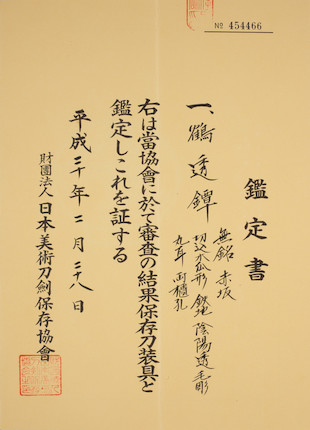 № 454466
鑑定書
一、鶴透鐔
無銘 赤坂
切込木瓜形 鉄地 陰陽透 毛彫
丸耳 両櫃孔
右は當協會に於て審査の結果保存刀装具と
鑑定しこれを証する
平成 十年二月二十八日
財團法人日本美術刀劍保存協會